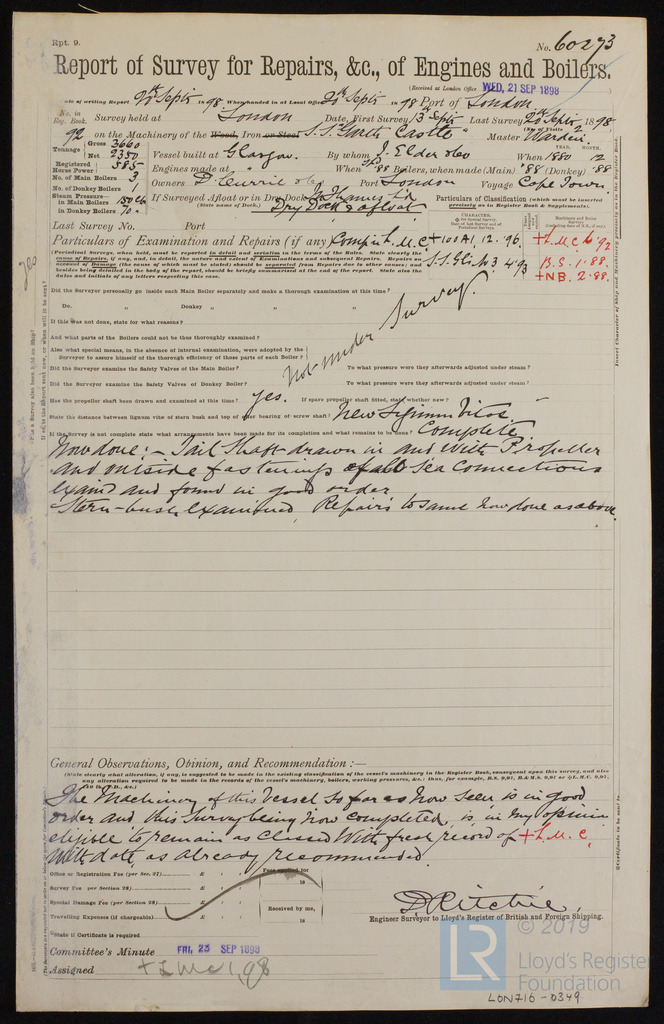 Rpt. 9.
No. 60273
Report of Survey for Repairs, &c., of Engines and Boilers.
(Received at London Office WED, 21 SEP 1898
Date of writing Report 20th Septr 1898 When handed in at Local Office 20th Septr 1898 Port of London
No. in Reg. Book. Survey held at London Date, First Survey 13 Septr Last Survey 20th Septr 1898
(No. of Visits 2
92 on the Machinery of the Wood, Iron or Steel S.S. "Garth Castle" Master Warden
Tonnage Gross 3660 Net 2350
Vessel built at Glasgow. By whom J. Elder & Co When 1880 12
YEAR. MONTH.
Registered Horse Power 585 Engines made at " When '88 Boilers, when made (Main) '88 (Donkey) '88
No. of Main Boilers 3 Owners D. Currie & Co Port London Voyage Cape Town.
No. of Donkey Boilers 1
Steam Pressure in Main Boilers 150
in Donkey Boilers 70
If Surveyed Afloat or in Dry Dock Thames
(State name of Dock.) Dry Dock & afloat
Particulars of Classification (which must be inserted precisely as in Register Book & Supplements).
Last Survey No. Port
Particulars of Examination and Repairs (if any) Compln L.M.C +100A1, 12.'96, +L.M.C 6 '92
S.S. Gls No 3 4 '93 B.S. 1.88.
+NB. 2.88.
(Periodical Surveys, when held, must be reported in detail and seriatim in the terms of the Rules. State clearly the cause of Repairs, if any, and, in detail, the nature and extent of Examinations and subsequent Repairs. Repairs on account of Damage (the cause of which must be stated) should be separated from Repairs due to other causes; and besides being detailed in the body of the report, should be briefly summarised at the end of the report. State also the dates and initials of any letters respecting this case.)
Did the Surveyor personally go inside each Main Boiler separately and make a thorough examination at this time?
Do. " Donkey " "
If this was not done, state for what reasons?
And what parts of the Boilers could not be thus thoroughly examined?
Also what special means, in the absence of internal examination, were adopted by the
Surveyor to assure himself of the thorough efficiency of those parts of each Boiler?
Not under Survey.
Did the Surveyor examine the Safety Valves of the Main Boiler? To what pressure were they afterwards adjusted under steam?
Did the Surveyor examine the Safety Valves of Donkey Boiler? To what pressure were they afterwards adjusted under steam?
Has the propeller shaft been drawn and examined at this time? Yes. If spare propeller shaft fitted, state whether new?
State the distance between lignum vitæ of stern bush and top of after bearing of screw shaft? New Lignum Vitae
If the Survey is not complete state what arrangements have been made for its completion and what remains to be done? Complete
Now done:- Tail Shaft drawn in and with Propeller
and outside fastenings of all Sea Connections
Examd and found in good order
Stern-bush Examined, Repairs to same now done as above.
General Observations, Opinion, and Recommendation :—
(State clearly what alteration, if any, is suggested to be made in the existing classification of the vessel's machinery in the Register Book, consequent upon this survey, and also any alteration required to be made in the records of the vessel's machinery, boilers, working pressures, &c.: thus, for example, B.S. 9,91, B.& M.S. 9,91 or L.M.C. 9,91,
The Machinery of this Vessel so far as now seen, is in good
order and this Survey being now completed, is in my opinion
eligible to remain as Classed with fresh record of +L.M.C,
with date, as already recommended.
Office or Registration Fee (per Sec. 27)... £ : : Fees applied for
Survey Fee (per Section 28)... £ : : 18
Special Damage Fee (per Section 28)... £ : : Received by me,
Travelling Expenses (if chargeable)... £ : : 18
State if Certificate is required
D. Ritchie,
Engineer Surveyor to Lloyd's Register of British and Foreign Shipping.
Committee's Minute FRI. 23 SEP 1898
Assigned + LMC 1,98
© 2019
LR Lloyd's Register
Foundation
LON716-0349